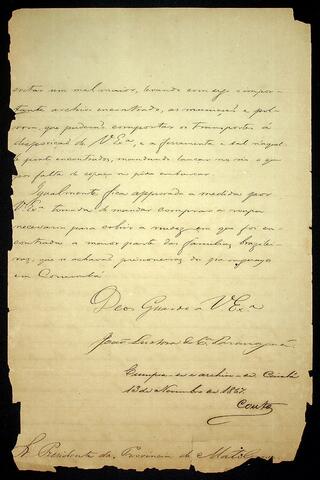 evitar um mal maior, levando comsigo o impor-
tante archivo encontrado, as munições e pol-
vora, que puderão comportar os transportes á
disposição de V. Exª, e a ferramenta e sal n'aquel-
le ponto encontrados, mandando lançar no rio o que
por falta de espaço não pôde embarcar.
Igualmente fica approvada a medida por
V. Exª tomada de mandar comprar a roupa
necessaria para cobrir a nudez em que foi en-
contrada a maior parte das familias brazilei-
ras, que se achavão prisioneiras do paraguayo
em Corumbá.
Deos Guarde a V. Exª
João Lustosa da Cª Paranaguá
Cumpra-se e archive-se. Cuiabá
13 de Novembro de 1867.
Couto
Sr. Presidente da Provincia de Matto